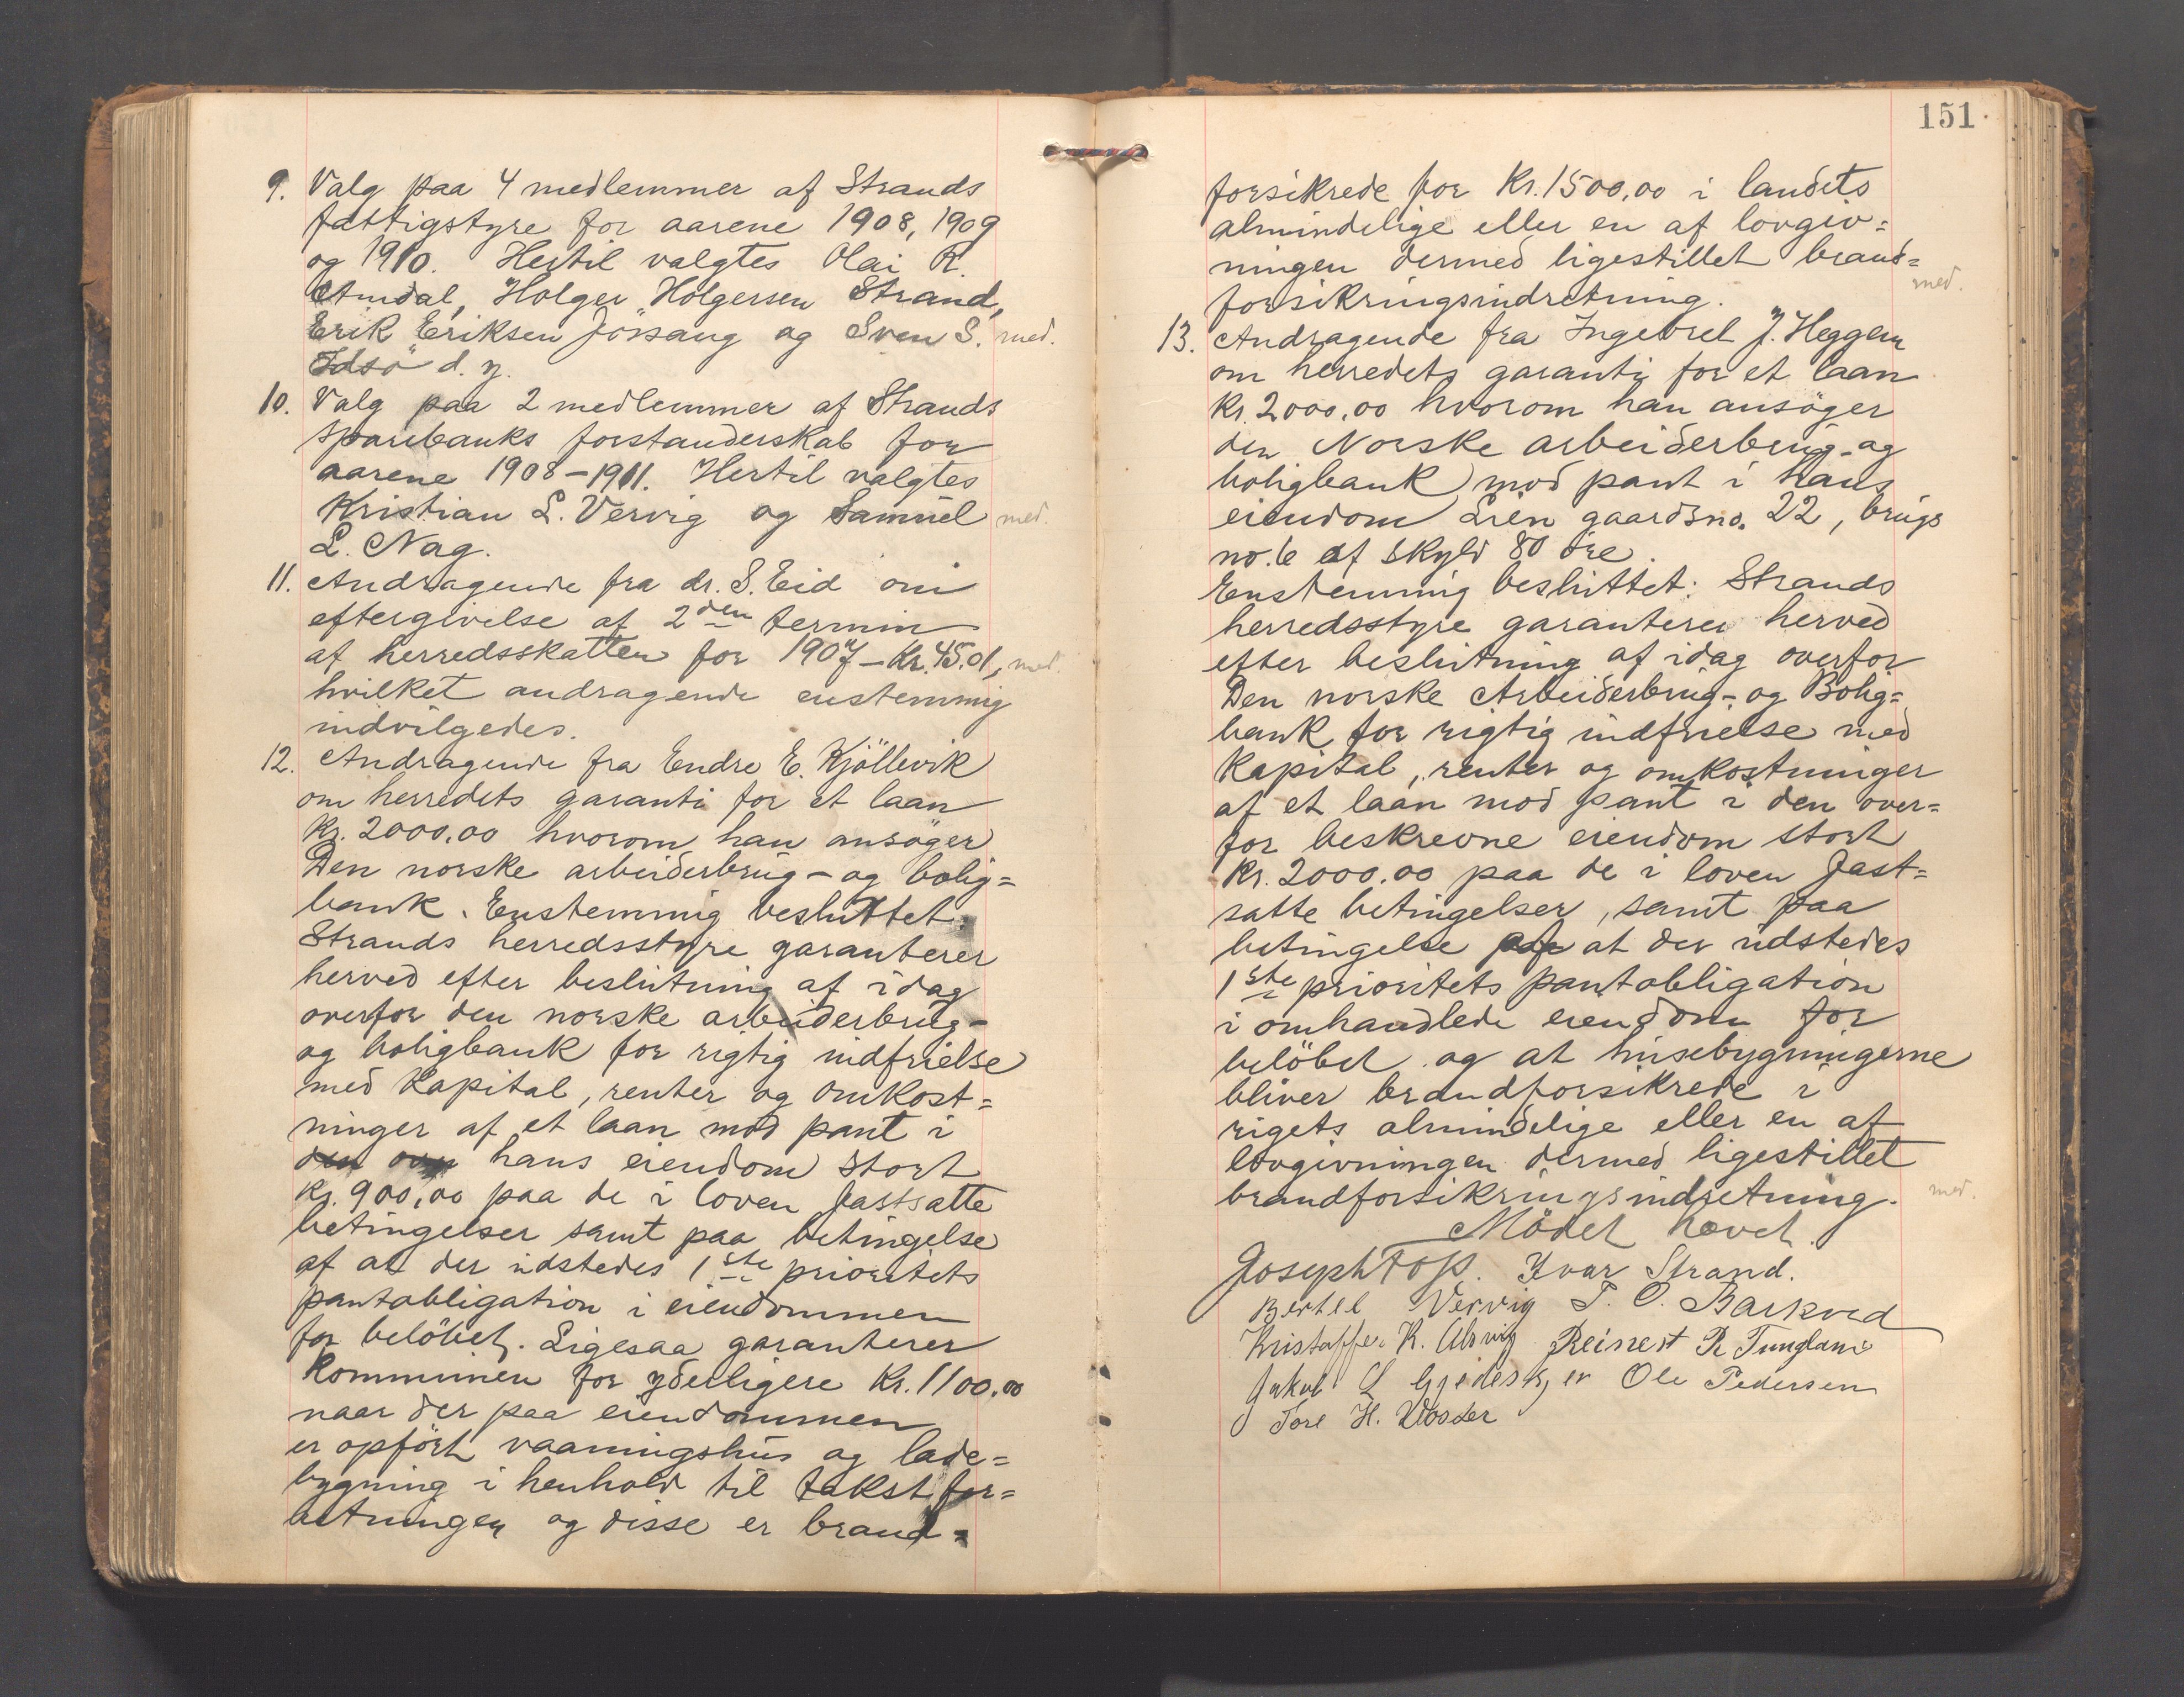 9. Valg paa 4 medlemmer af Strands
fattigstyre for aarene 1908, 1909
og 1910. Hertil valgtes Olai R.
Amdal, Holger Holgersen Strand,
Erik Eriksen Jössang og Sven S. med.
Idsö d. y.
10. Valg paa 2 medlemmer af Strands
sparebanks forstanderskab for
aarene 1908-1911. Hertil valgtes
Kristian L. Vervig og Samuel med.
L. Nag.
11. Andragende fra dr. S. Eid om
eftergivelse af 2den termin
af herredsskatten for 1907 - Kr. 45.01, med.
hvilket andragende enstemmig
indvilgedes.
12. Andragende fra Endre E. Kjöllevik
om herredets garanti for et laan
Kr. 2000.00 hvorom han ansöger
Den norske arbeiderbrug- og bolig=
bank. Enstemmig besluttet:
Strands herredsstyre garanterer
herved efter beslutning af idag
overfor den norske arbeiderbrug-
og boligbank for rigtig indfrielse
med Kapital, renter og omkost=
ninger af et laan mod pant i
den hans eiendom stort
Kr. 900,00 paa de i loven fastsatte
betingelser samt paa betingelse
af at der udstedes 1ste prioritets
pantobligation i eiendommen
for belöbet. Ligesaa garanterer
Kommunen for yderligere Kr. 1100.00
naar der paa eiendommen
er opfört vaaningshus og lade=
bygning i henhold til takstfor=
retningen og disse er brand=
151
forsikrede for Kr. 1500,00 i landets
almindelige eller en af lovgiv=
ningen dermed ligestillet brand=
forsikringsindretning. med.
13. Andragende fra Ingebret J. Heggem
om herredets garanti for et laan
Kr. 2000.00 hvorom han ansöger
den Norske arbeiderbrug- og
boligbank mod pant i hans
eiendom Lien gaardsno. 22, brugs
no. 6 af skyld 80 öre.
Enstemmig besluttet: Strands
herredsstyre garanterer herved
efter beslutning af idag overfor
Den norske Arbeiderbrug- og Bolig=
bank for rigtig indfrielse med
Kapital, renter og omkostninger
af et laan mod pant i den over=
for beskrevne eiendom stort
Kr. 2000.00 paa de i loven fast=
satte betingelser, samt paa
betingelse af at der udstedes
1ste prioritets pantobligation
i omhandlede eiendom for
belöbet og at husebygningerne
bliver brandforsikrede i
rigets almindelige eller en af
lovgivningen dermed ligestillet
brandforsikringsindretning. med.
Mödet hævet.
Joseph Foss. Ivar Strand.
Bertel Vervig T. O. Barkved
Kristoffer K. Alsvig Reinert R Tungland
Jakob L Gjedeskjer Ole Pedersen
Tore H.